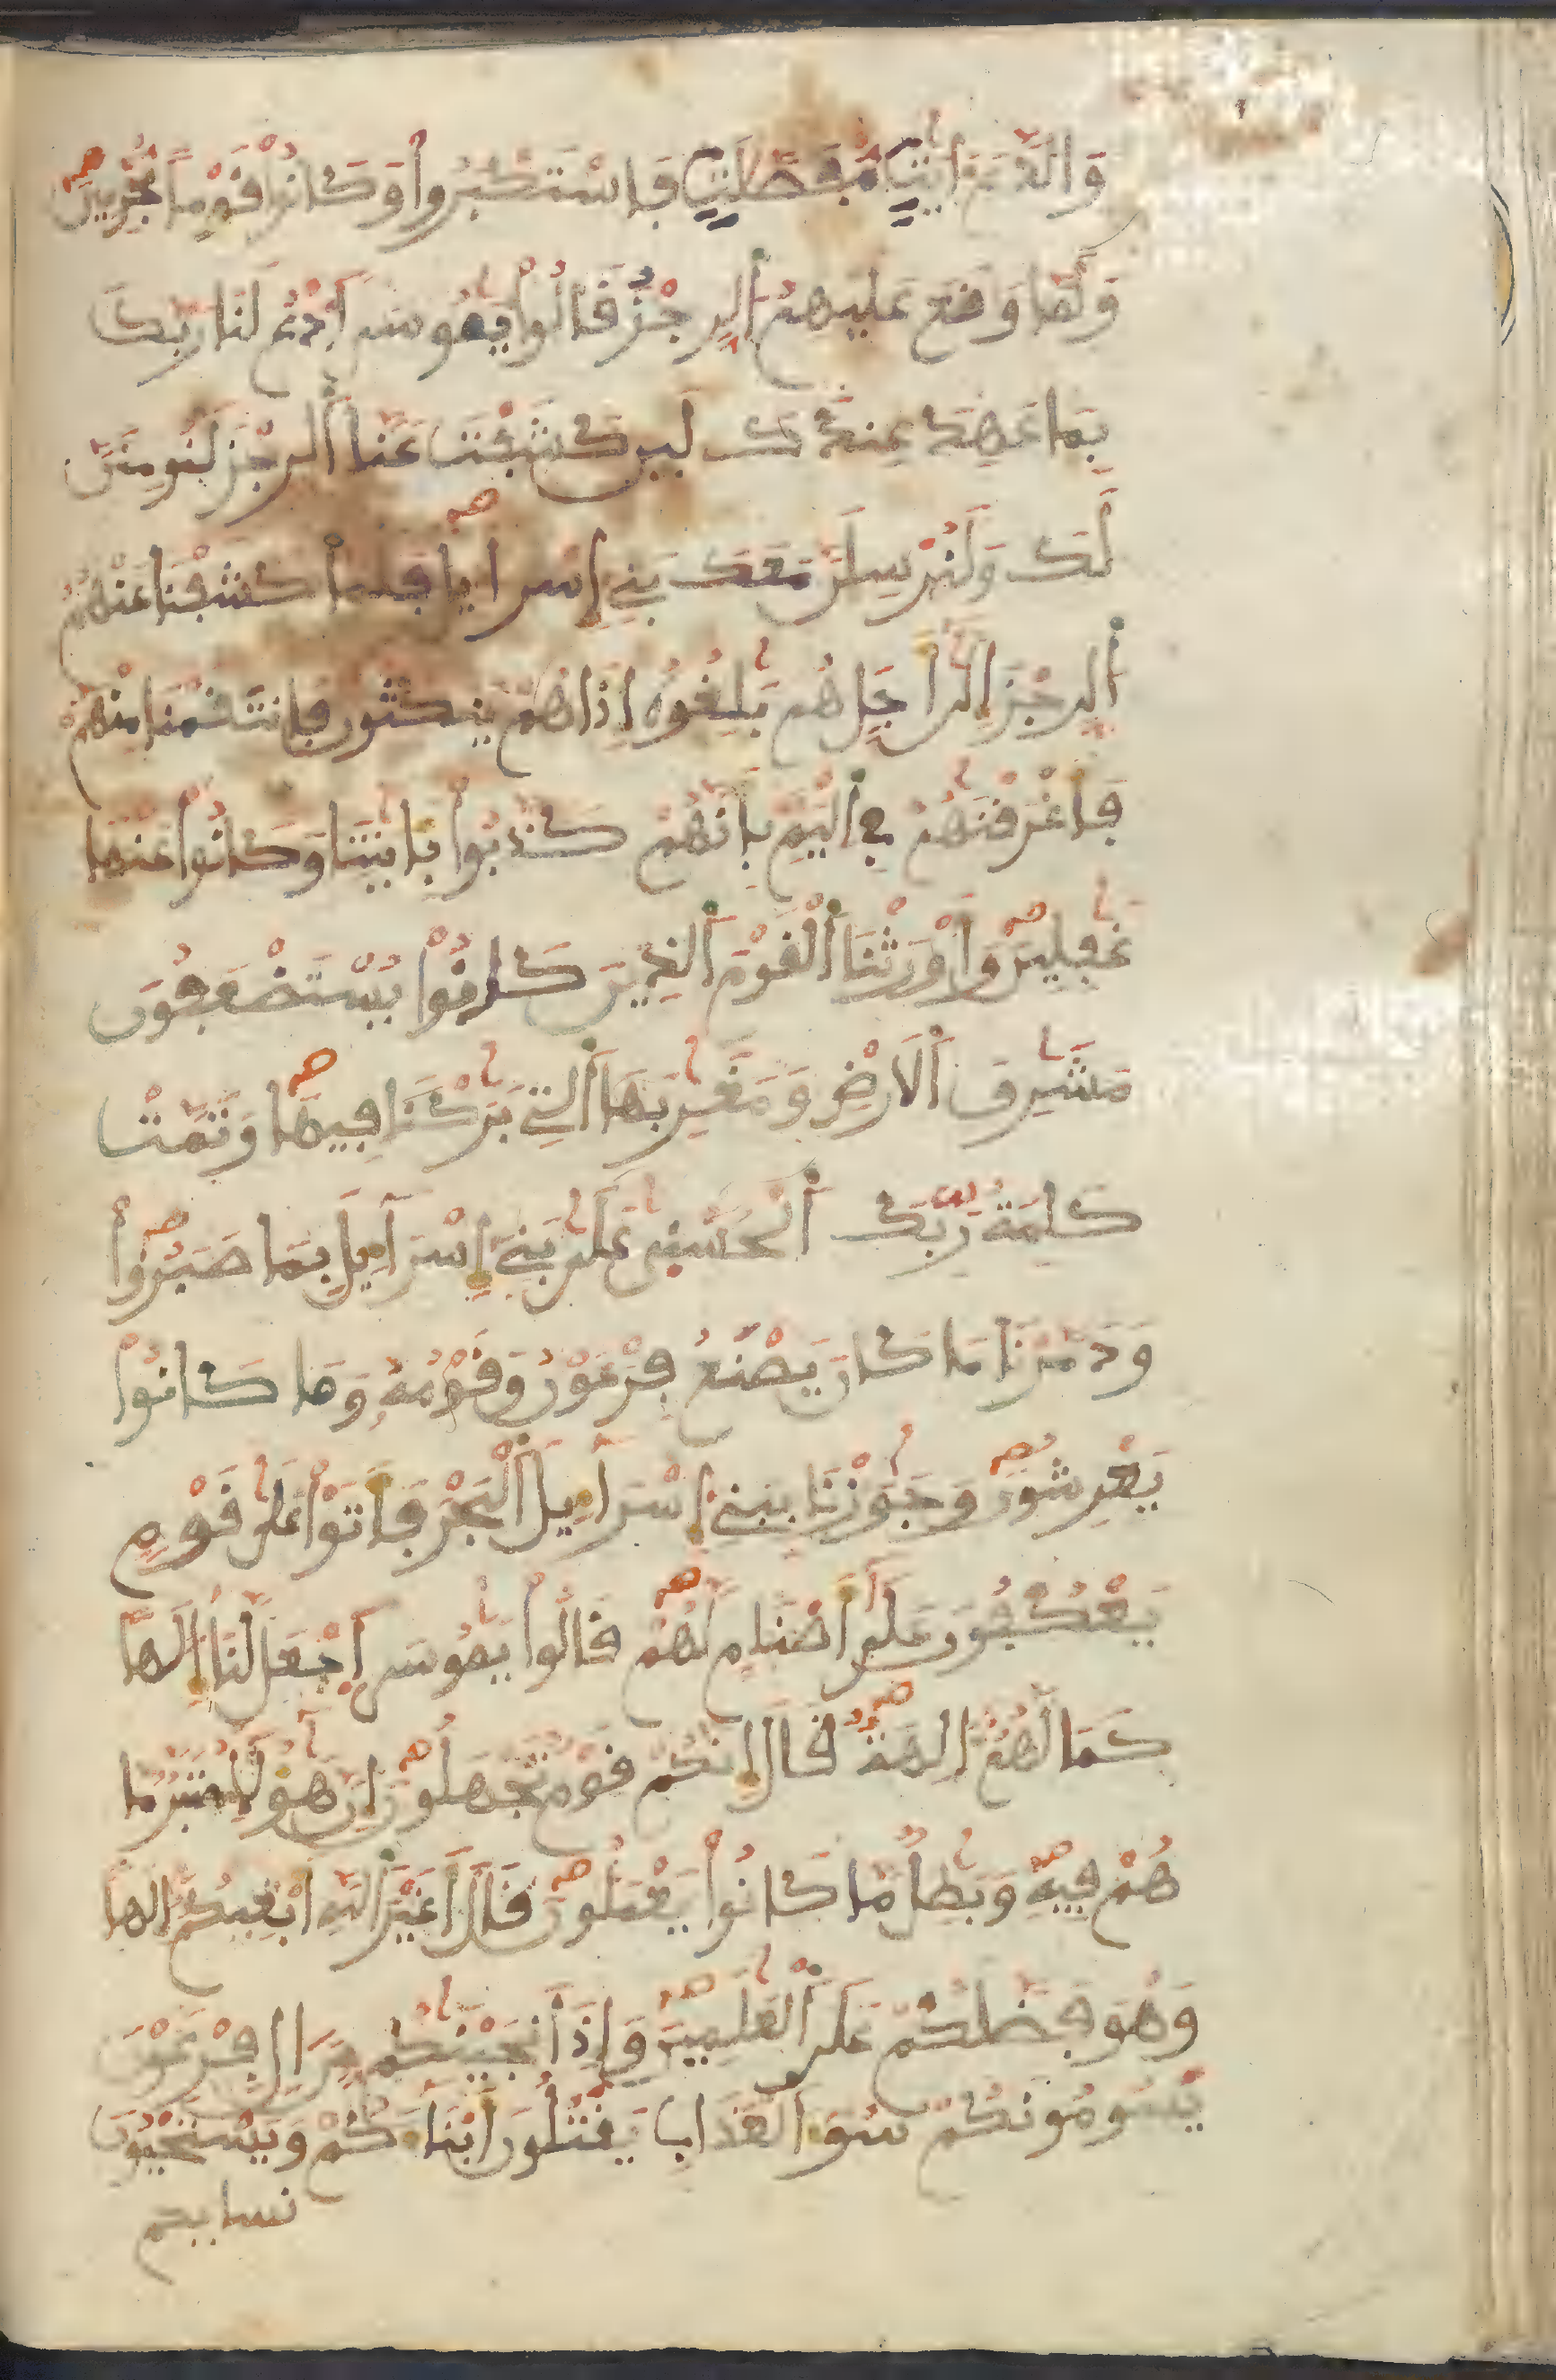 وَالدَّمَ ءَايَٰتٖ مُّفَصَّلَٰتٖ فَاسْتَكْبَرُوا۟ وَكَانُوا۟ قَوْماٗ مُّجْرِمِينَ
وَلَمَّا وَقَعَ عَلَيْهِمُ اُلرِّجْزُ قَالُوا۟ يَٰمُوسَى اَدْعُ لَنَا رَبَّكَ
بِمَا عَهِدَ عِندَكَ لَئِن كَشَفْتَ عَنَّا اَلرِّجْزَ لَنُومِنَنَّ
لَكَ وَلَنُرْسِلَنَّ مَعَكَ بَنِے إِسْرَآءِيلَ فَلَمَّا كَشَفْنَا عَنْهُمُ
اُلرِّجْزَ إِلَىٰ أَجَلٍ هُم بَٰلِغُوهُ إِذَا هُمْ يَنكُثُونَ فَانتَقَمْنَا مِنْهُمْ
فَأَغْرَقْنَٰهُمْ فِے اِلْيَمِّ بِأَنَّهُمْ كَذَّبُوا۟ بِـَٔايَٰتِنَا وَكَانُوا۟ عَنْهَا
غَٰفِلِينَ وَأَوْرَثْنَا اَلْقَوْمَ اَلذِينَ كَانُوا۟ يُسْتَضْعَفُونَ
مَشَٰرِقَ اَلَارْضِ وَمَغَٰرِبَهَا اَلتِے بَٰرَكْنَا فِيهَا وَتَمَّتْ
كَلِمَتُ رَبِّكَ اَلْحُسْنَىٰ عَلَىٰ بَنِے إِسْرَآءِيلَ بِمَا صَبَرُوا۟
وَدَمَّرْنَا مَا كَانَ يَصْنَعُ فِرْعَوْنُ وَقَوْمُهُۥ وَمَا كَانُوا۟
يَعْرِشُونَ وَجَٰوَزْنَا بِبَنِے إِسْرَآءِيلَ اَلْبَحْرَ فَأَتَوْا۟ عَلَىٰ قَوْمٖ
يَعْكُفُونَ عَلَىٰ أَصْنَامٖ لَّهُمْ قَالُوا۟ يَٰمُوسَى اَجْعَل لَّنَا إِلَٰهاٗ
كَمَا لَهُمُ ءَالِهَةٞ قَالَ إِنَّكُمْ قَوْمٞ تَجْهَلُونَ إِنَّ هَٰٓؤُلَآءِ مُتَبَّرٞ مَّا
هُمْ فِيهِ وَبَٰطِلٞ مَّا كَانُوا۟ يَعْمَلُونَ قَالَ أَغَيْرَ اَللَّهِ أَبْغِيكُمُ إِلَٰهاٗ
وَهُوَ فَضَّلَكُمْ عَلَى اَلْعَٰلَمِينَ وَإِذَ اَنجَيْنَٰكُم مِّنَ ءَالِ فِرْعَوْنَ
يَسُومُونَكُمْ سُوٓءَ اَلْعَذَابِ يَقْتُلُونَ أَبْنَآءَكُمْ وَيَسْتَحْيُونَ
نساءكم